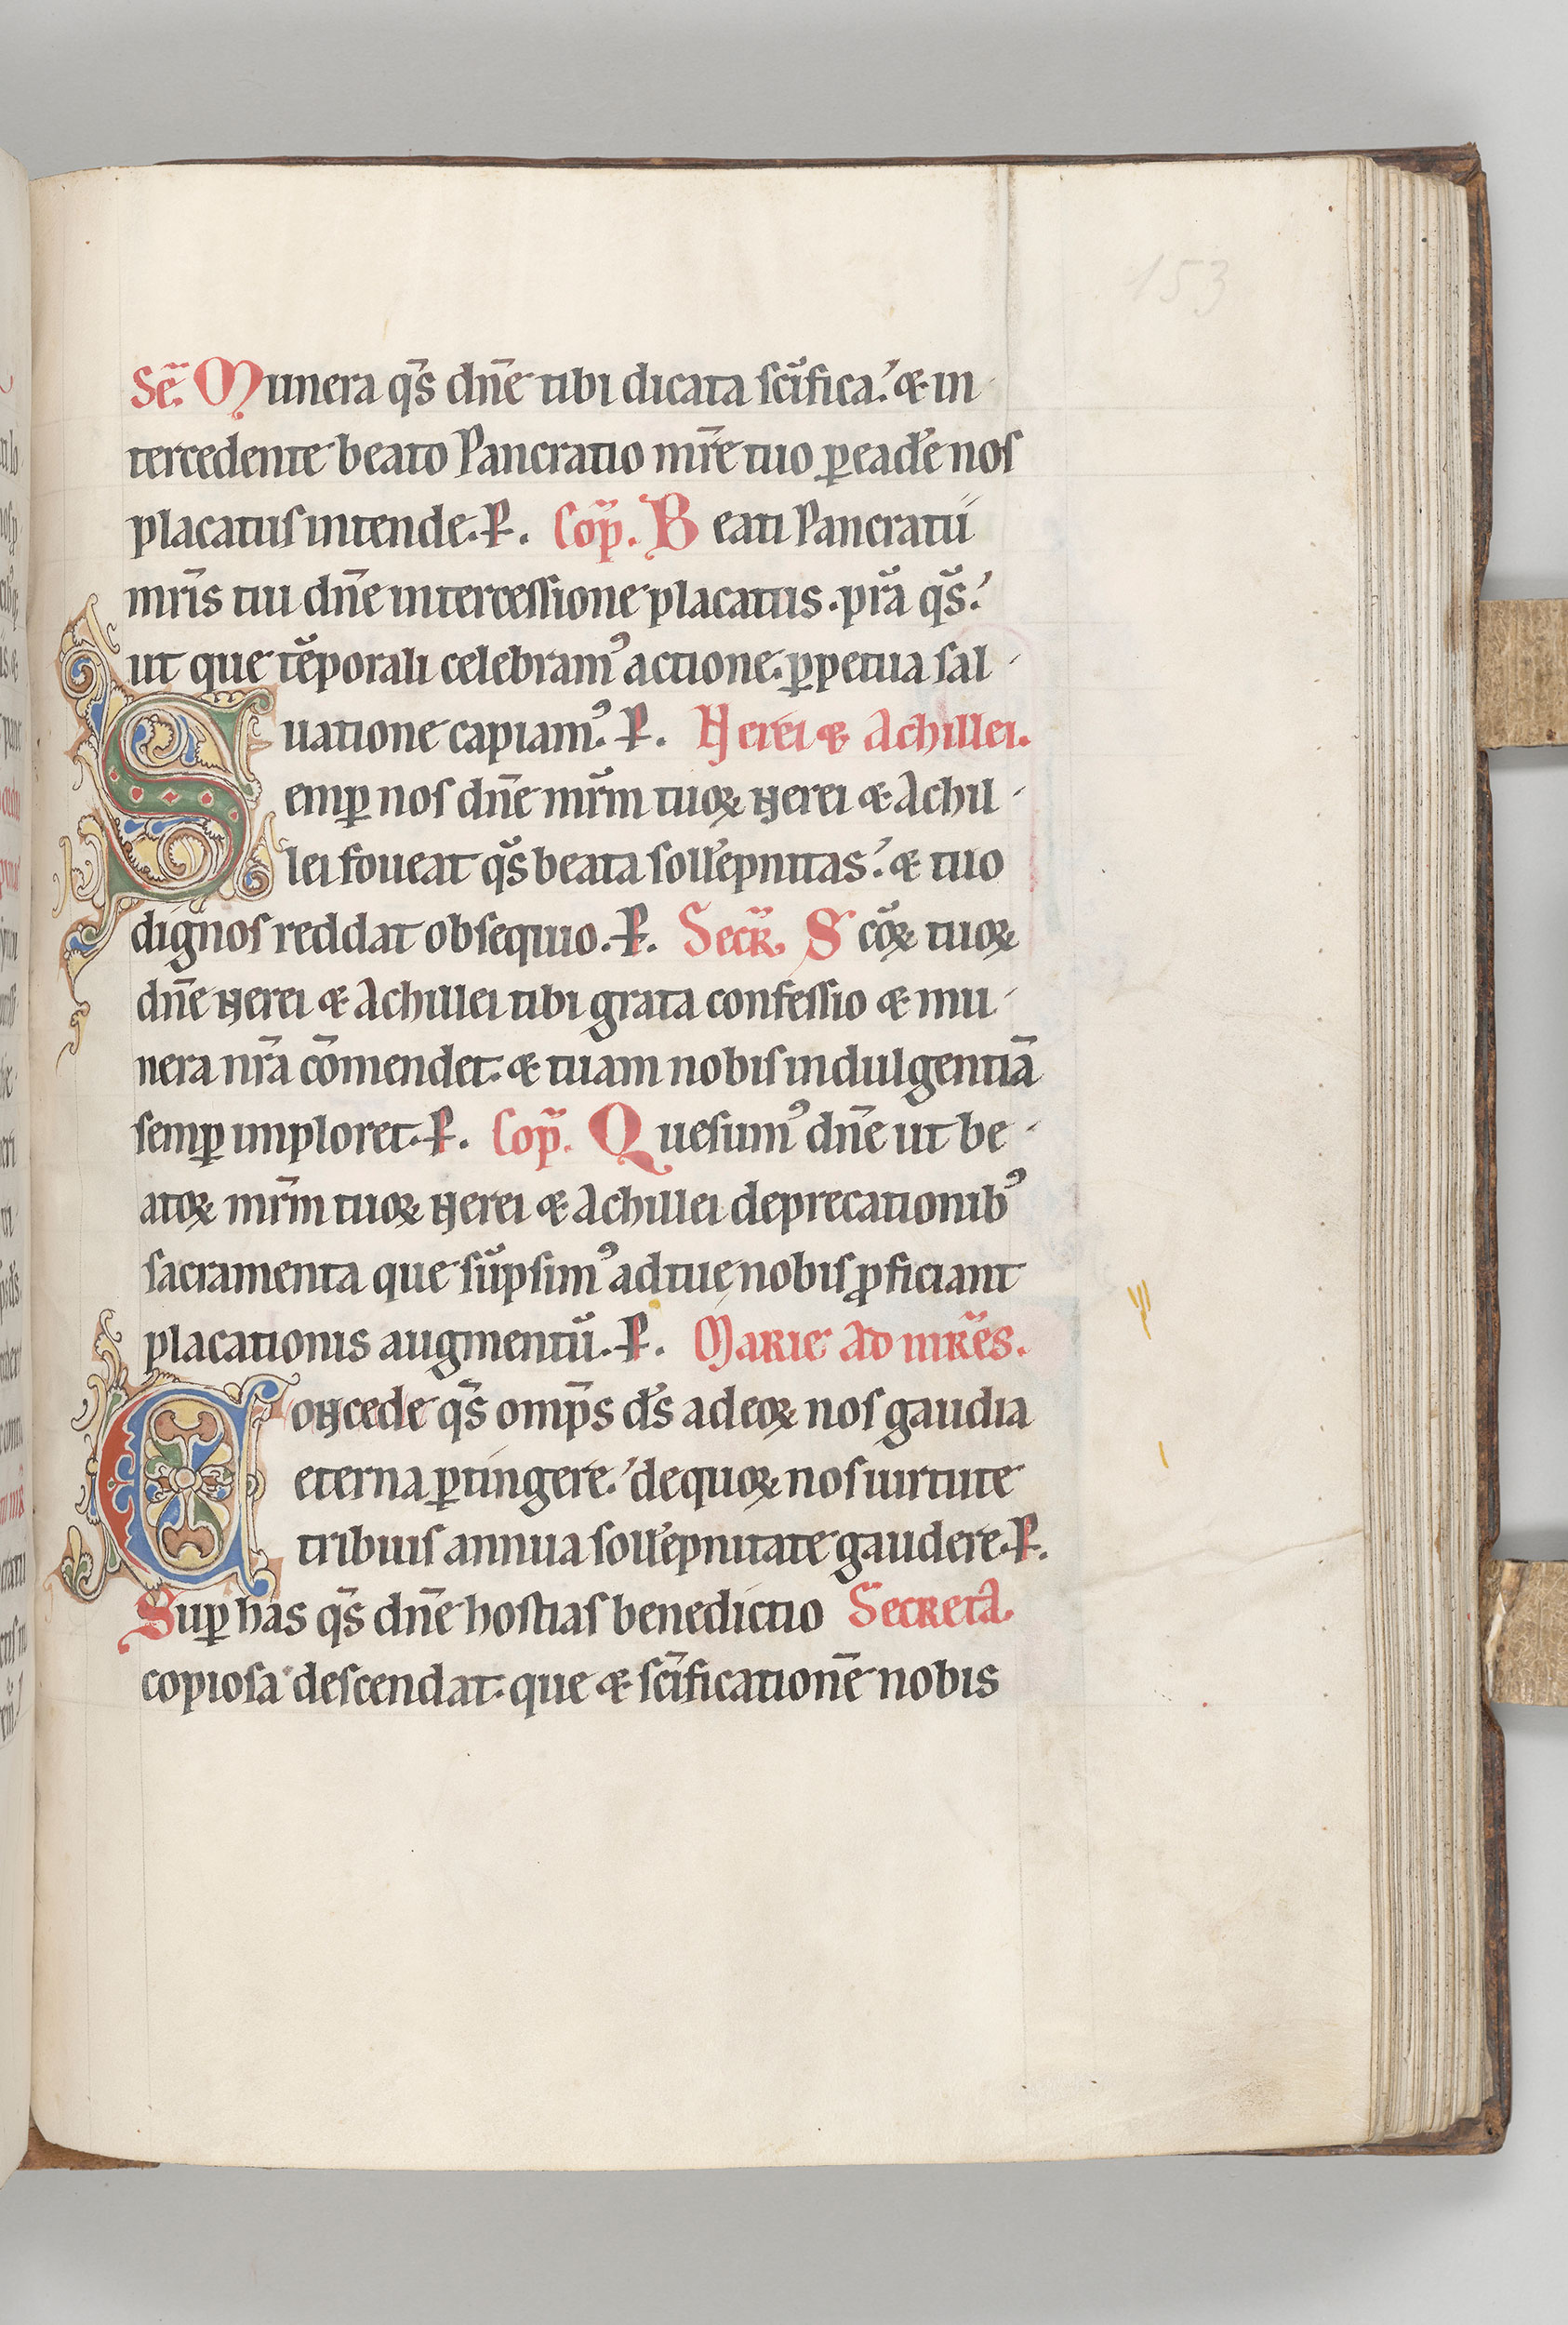 153
Sec̄. Munera q̄s dn̄e tibi dicata sc̄ifica. & in
tercedente beato Pancratio mr̄e tuo ꝑ eadē nos
placatus intende. P̶. Cop̄. Beati Pancratii
mr̄is tui dn̄e intercessione placatus. pr̄a q̄s.
ut que tēporali celebram᾿ actione. ꝑpetua sal
uatione capiam᾿. P̶. Nerei & Achillei.
Semꝑ nos dn̄e mr̄m tuoꝝ Nerei & Achil
lei foueat q̄s beata sollēpnitas. & tuo
dignos reddat obsequio. P̶. Secr̄. Sc̄oꝝ tuoꝝ
dn̄e Nerei & Achillei tibi grata confessio & mu
nera nr̄a cōmendet. & tuam nobis indulgentiā
semꝑ imploret. P̶. Cop̄. Quesum᾿ dn̄e ut be
atoꝝ mr̄m tuoꝝ Nerei & Achillei deprecationib᾿
sacramenta que sūpsim᾿ ad tuę nobis ꝓficiant
placationis augmentū. P̶. Marie ad mr̄es.
Concede q̄s omp̄s d̄s ad eoꝝ nos gaudia
eterna ꝑtingere. de quoꝝ nos uirtute
tribuis annua sollēpnitate gaudere. P̶.
Suꝑ has q̄s dn̄e hostias benedictio Secreta.
copiosa descendat. que & sc̄ificationē nobis